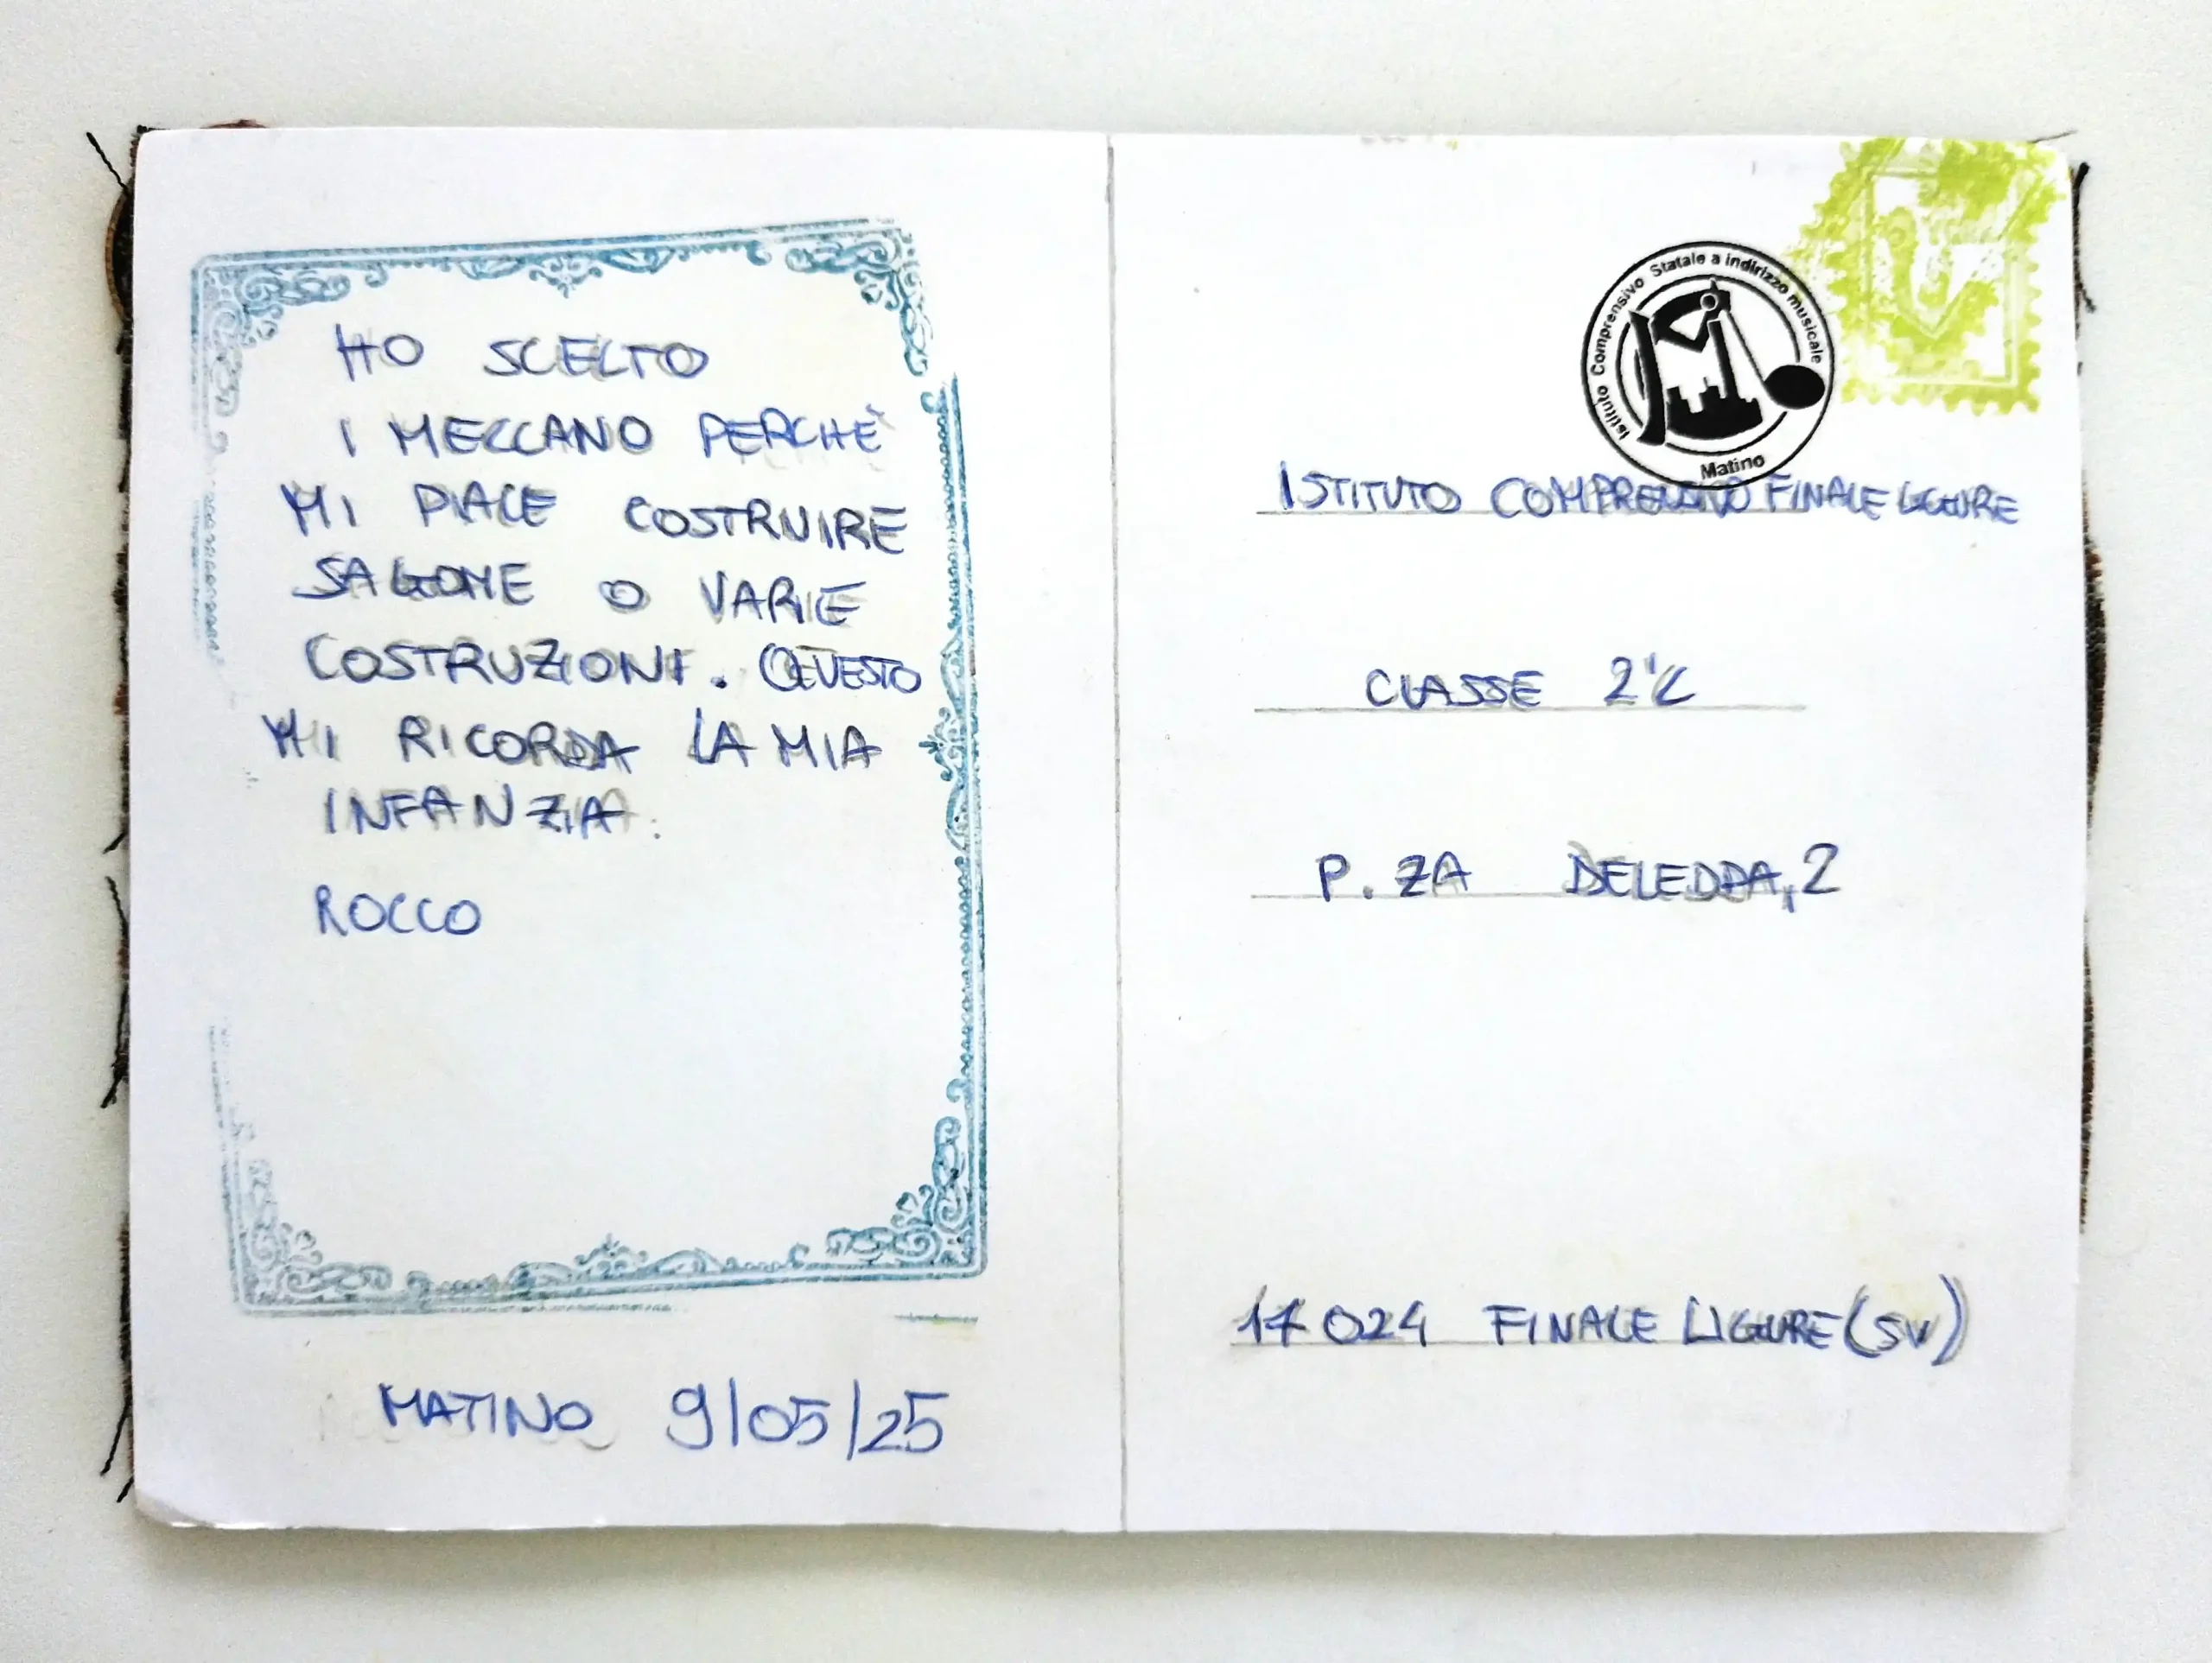 HO SCELTO
I MECCANO PERCHÈ
MI PIACE COSTRUIRE
SAGOME O VARIE
COSTRUZIONI. QUESTO
MI RICORDA LA MIA
INFANZIA.
ROCCO
MATINO 9/05/25
Istituto Comprensivo Statale a indirizzo musicale
Matino
ISTITUTO COMPRENSIVO FINALE LIGURE
CLASSE 2'C
P.ZA DELEDDA, 2
17024 FINALE LIGURE (SV)